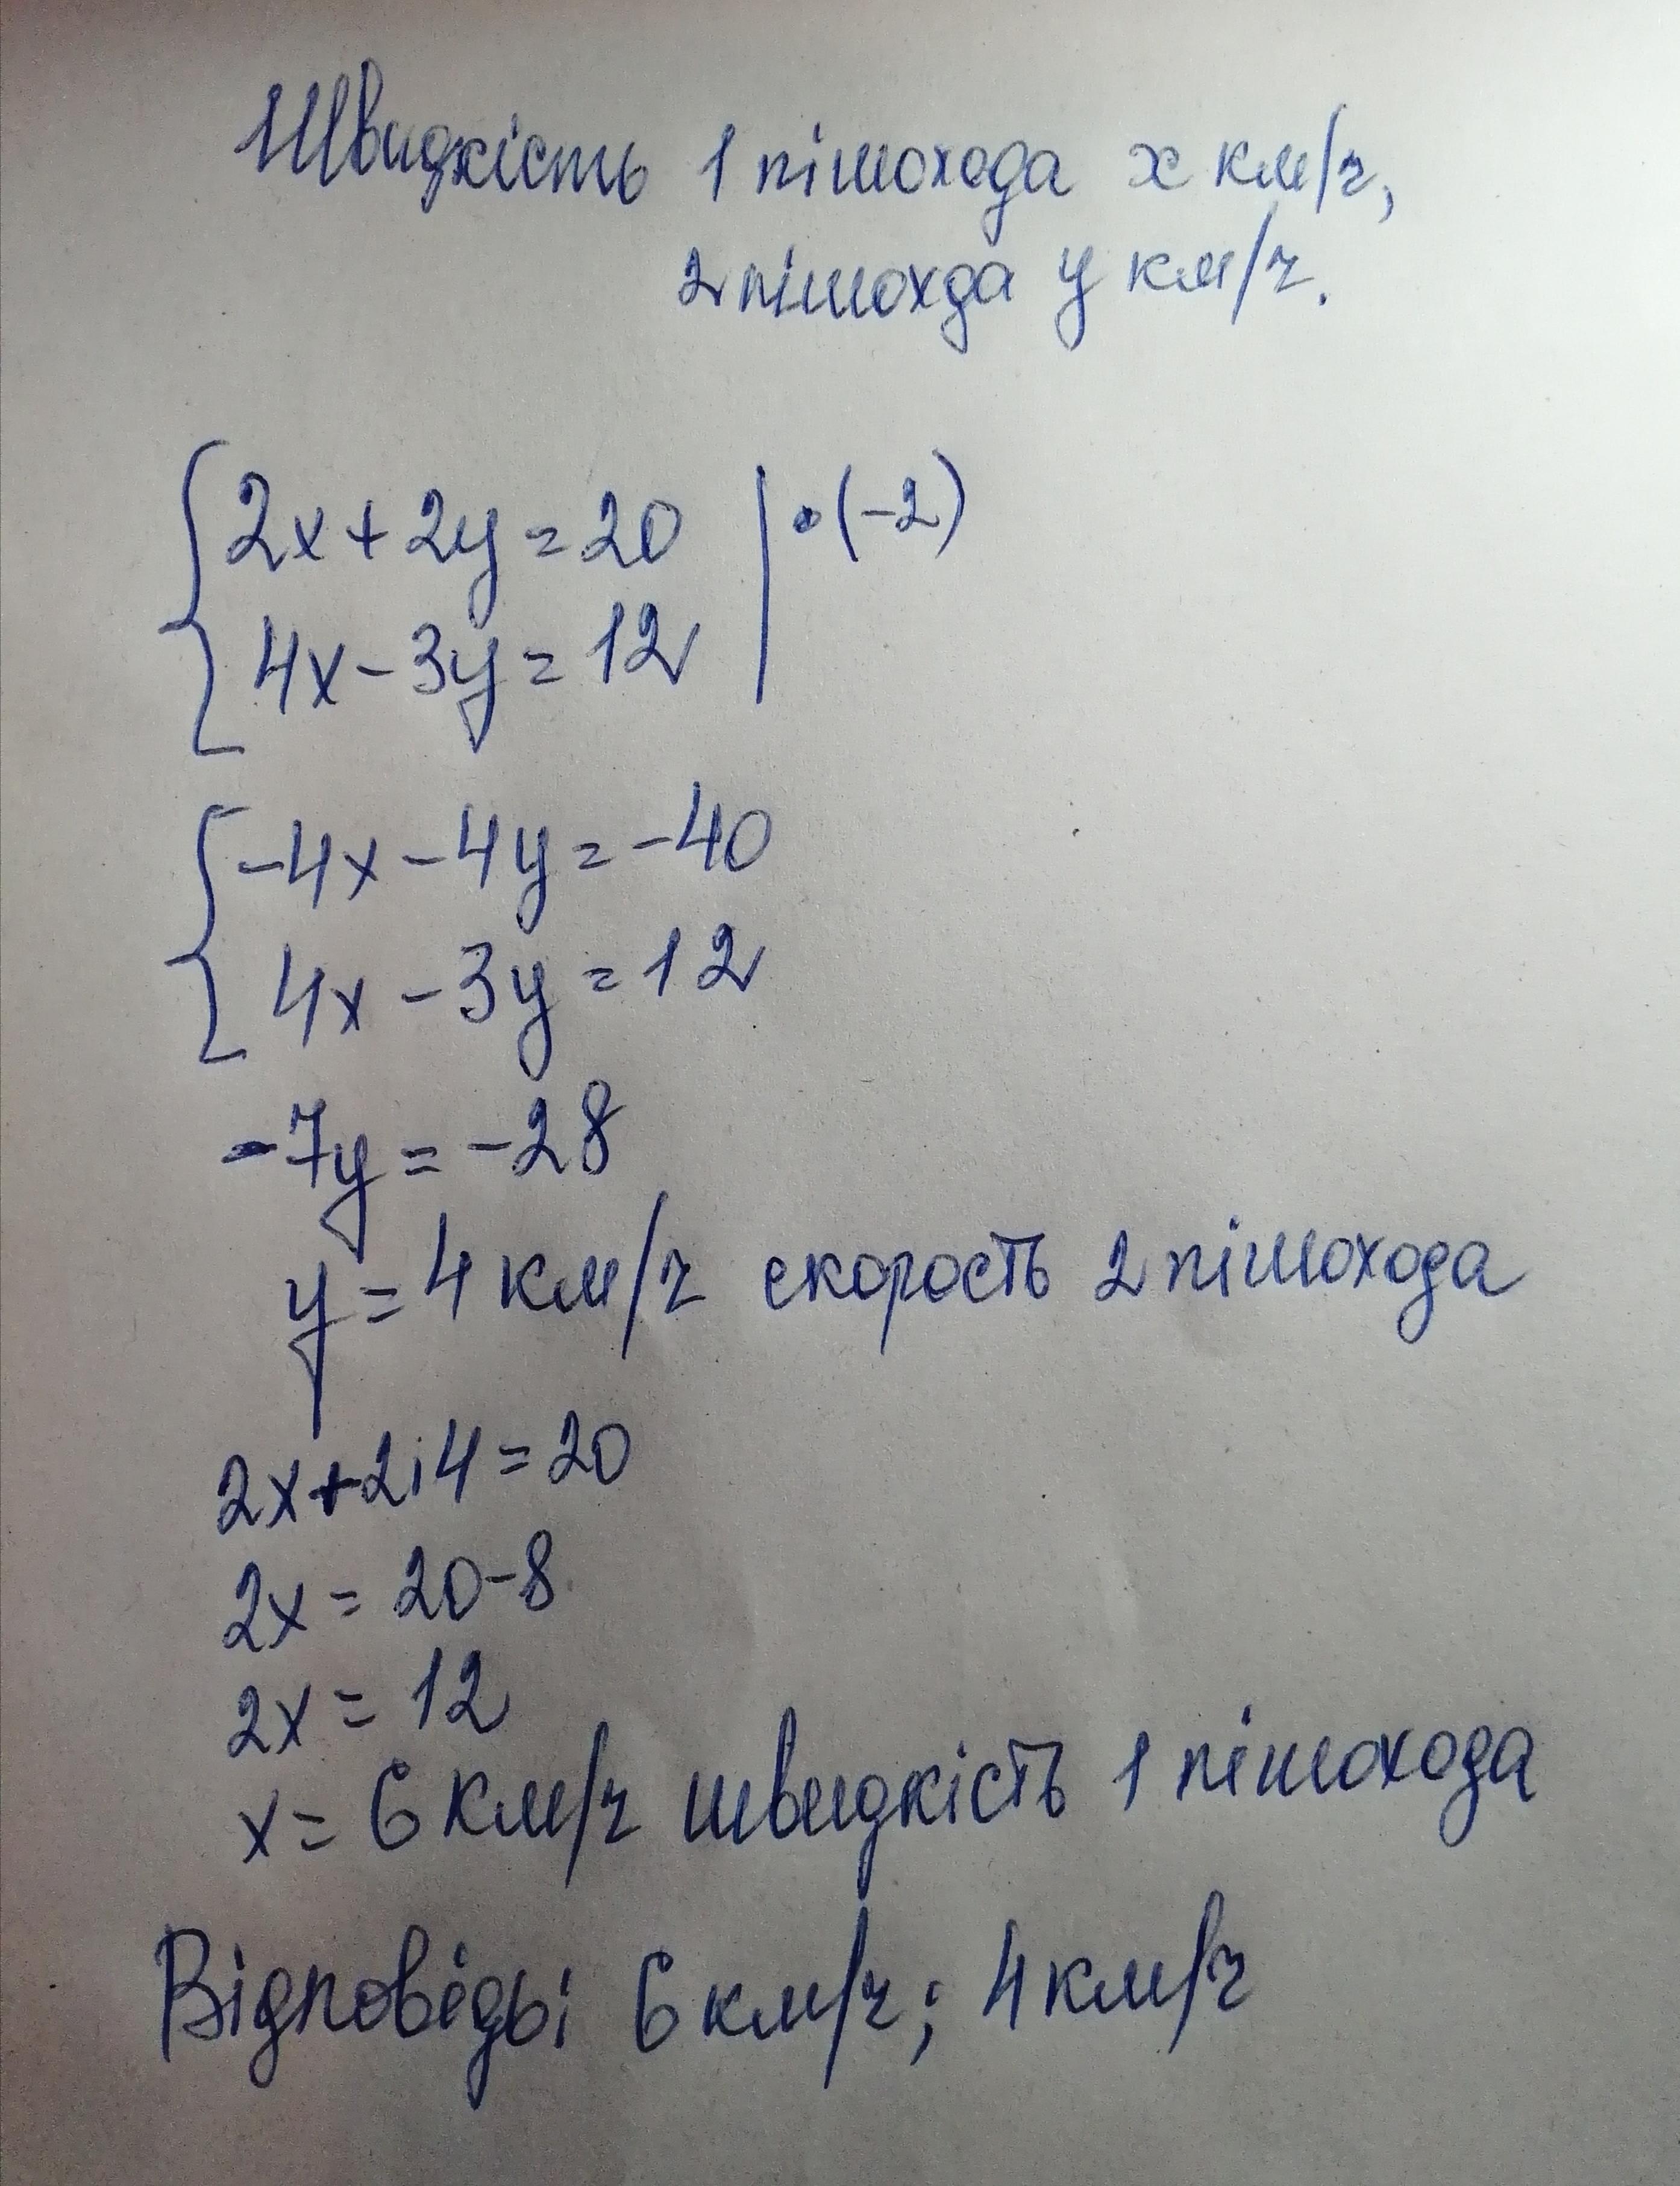 Швидкість 1 пішохода x км/ч,
2 пішохда y км/ч.
2x+2y=20 |•(-2)
4x-3y=12
-4x-4y=-40
4x-3y=12
-7y=-28
y=4 км/ч скорость 2 пішохода
2x+2·4=20
2x=20-8
2x=12
x=6 км/ч швидкість 1 пішохода
Відповідь: 6 км/ч; 4 км/ч